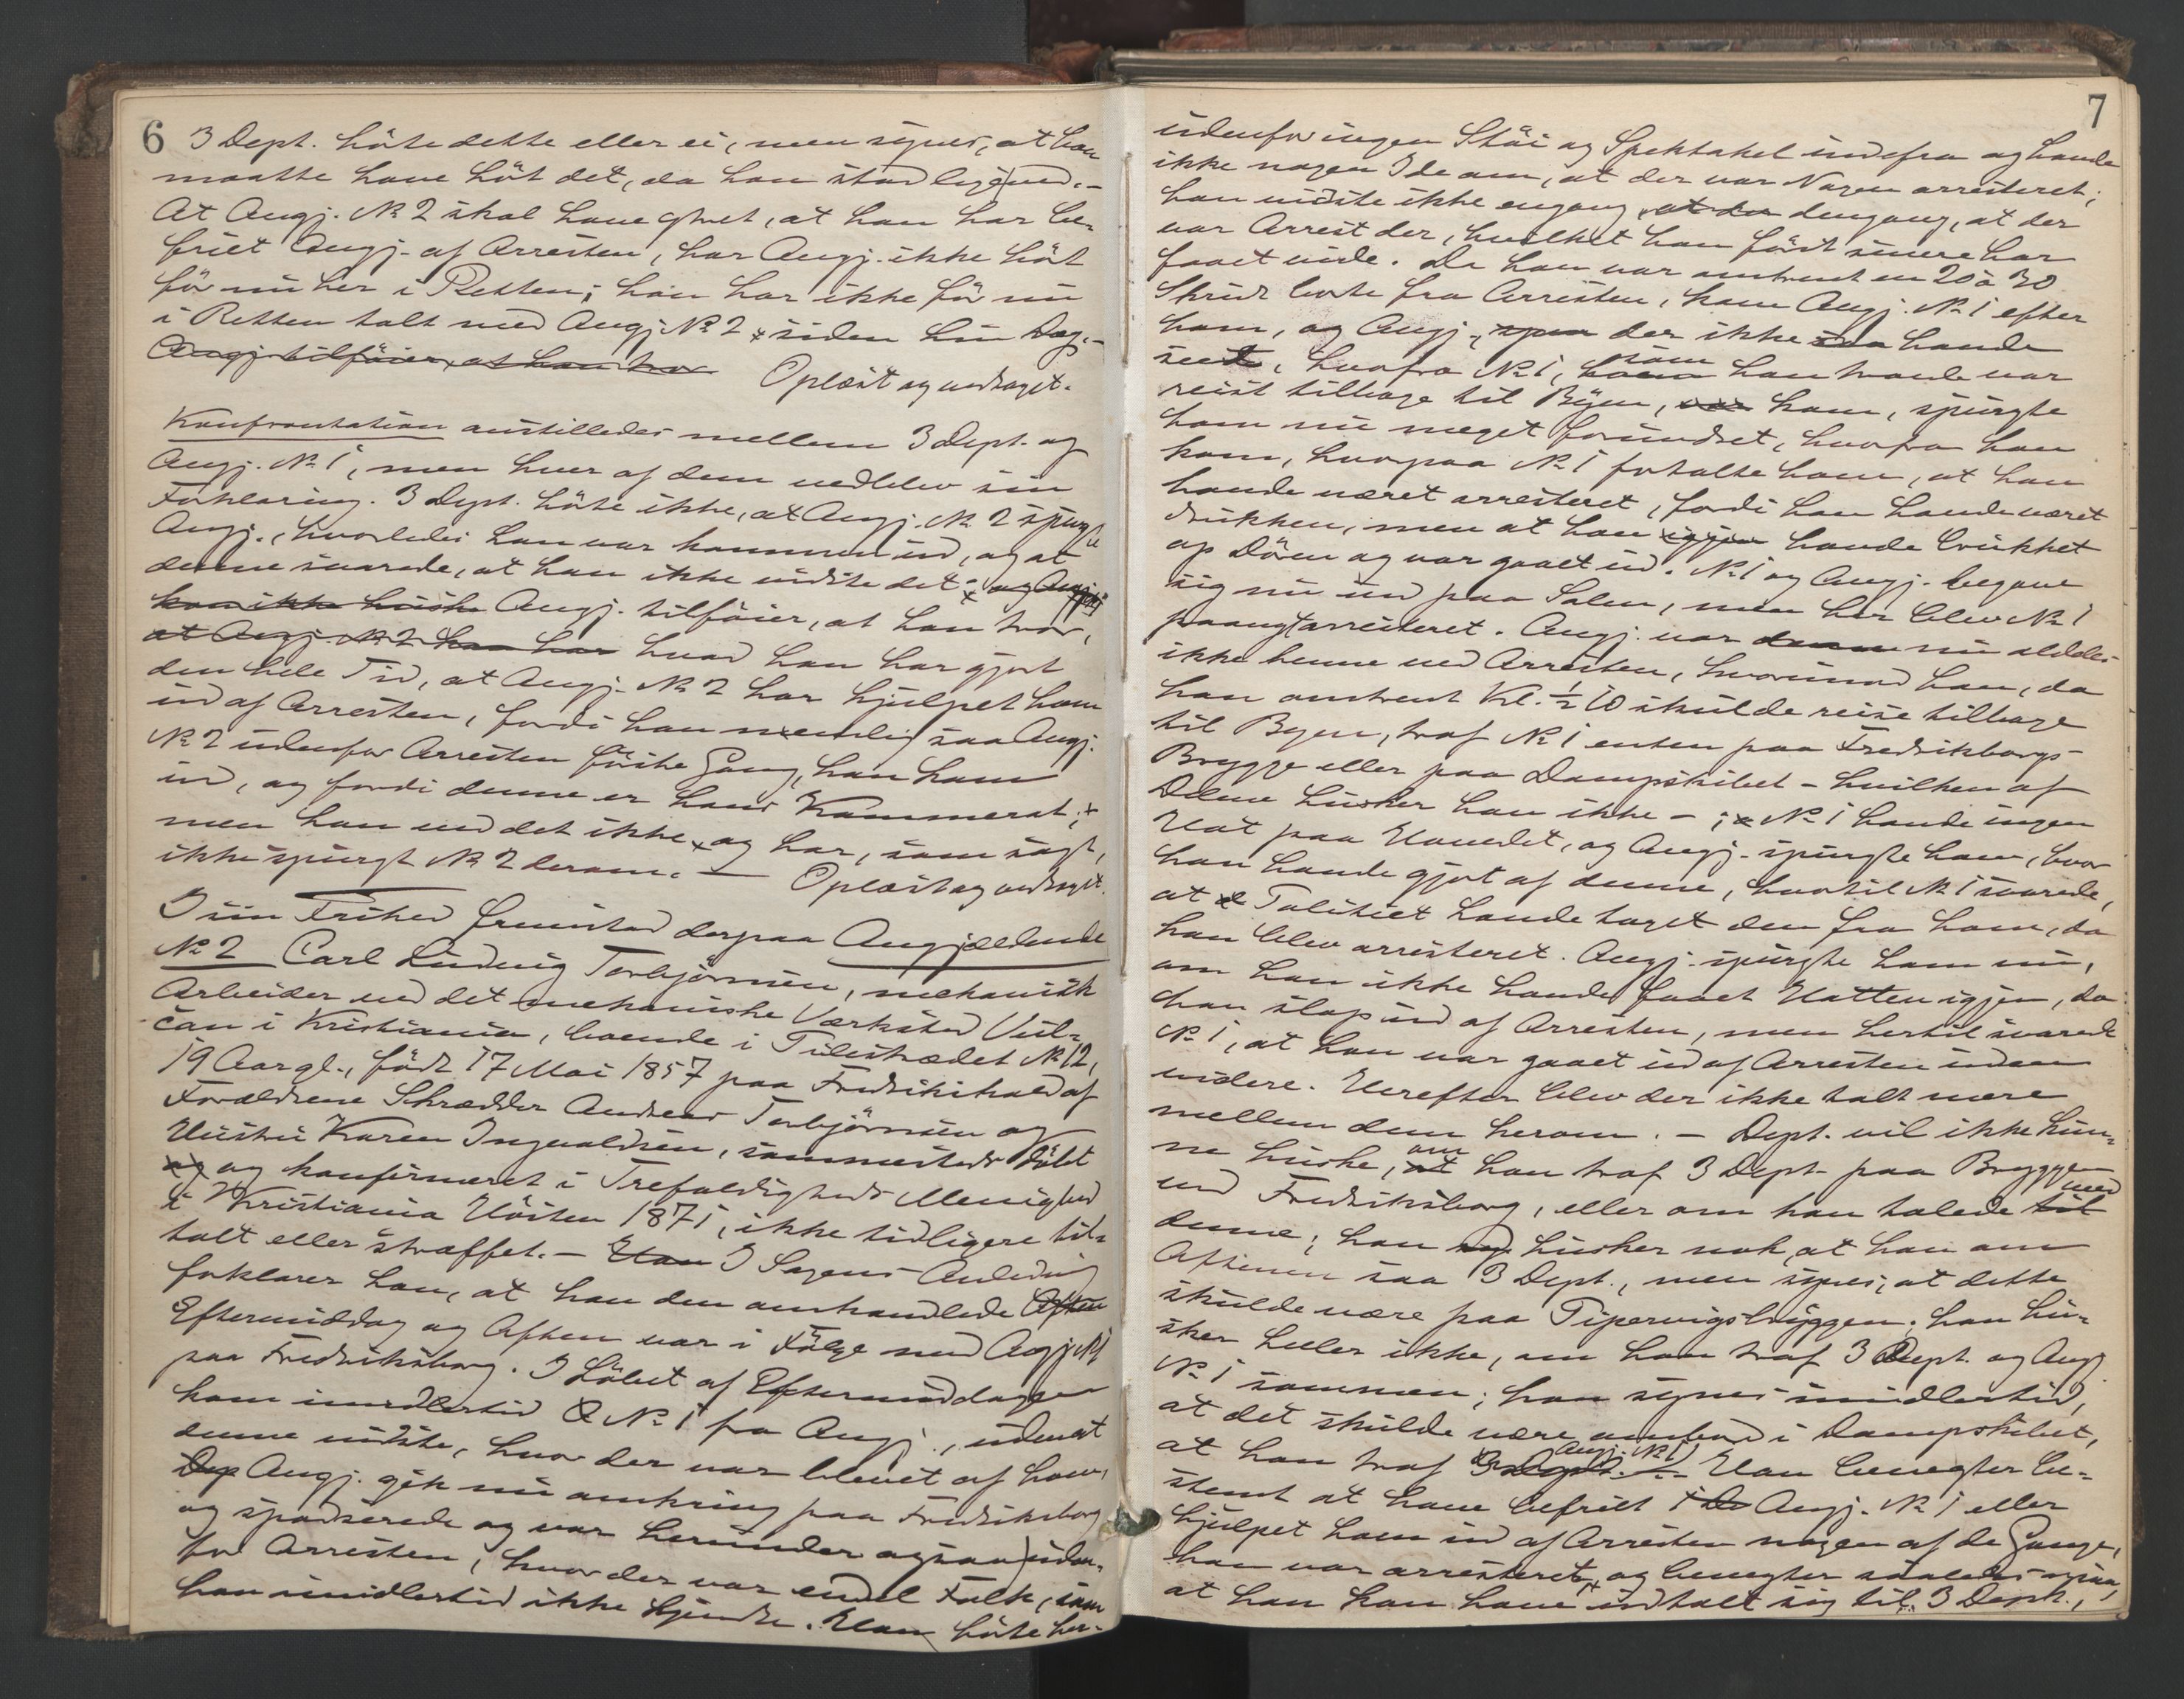 6
3 Dept. hörte dette eller ei, men synes, at han
maatte have hört det, da han stod lige ved. –
At Angj. No 2 skal have ytret, at han har be-
friet Angj. af Arresten, har Angj. ikke hört
för nu her i Retten; han har ikke för nu
i Retten talt med Angj. No 2 siden hin Dag. –
Angj. tilföier, at han tror Oplæst og vedtaget.
Konfrontation anstilledes mellem 3 Dept. og
Angj. No 1, men hver af dem vedblev sin
Forklaring. 3 Dept. hörte ikke, at Angj. No 2 spurgte
Angj., hvorledes han var kommen ud, og at
denne svarede, at han ikke vidste det; og Angj.
kan ikke huske Angj. tilföier, at han tror,
at Angj. No 2 han har hvad han har gjort
den hele Tid, at Angj. No 2 har hjulpet ham
ud af Arresten, fordi han nemlig saa Angj.
No 2 udenfor Arresten förste Gang, han kom
ud, og fordi denne er hans Kammerat;
men han ved det ikke, og har, som sagt,
ikke spurgt No 2 derom. — Oplæst og vedtaget.
I sin Frihed fremstod derpaa Angjældende
No 2 Carl Ludvig Torbjörnsen, mekanisk
Arbeider ved det mekaniske Værksted Vul-
can i Kristiania, boende i Pilestrædet No 12,
19 Aar gl., födt 17 Mai 1857 paa Fredrikshald af
Forældrene Skrædder Andreas Torbjörnsen og
Hustru Karen Ingvaldsen, sammesteds döbt
og og konfirmeret i Trefoldigheds Menighed
i Kristiania Hösten 1871, ikke tidligere til-
talt eller straffet. – Han I Sagens Anledning
forklarer han, at han den omhandlede Aften
Eftermiddag og Aften var i Fölge med Angj. No 1
paa Fredriksborg. I Löbet af Eftermiddagen
kom imidlertid No 1 fra Angj., uden at
denne vidste, hvor der var blevet af ham.
Dep Angj. gik nu omkring paa Fredriksborg
og spadserede og var herunder ogsaa uden-
for Arresten, hvor der var endel Folk, som
han imidlertid ikke kjendte. Han hörte her-
7
udenfor ingen Stöi og Spektakel indefra og havde
ikke nogen Ide om, at der var Nogen arresteret;
han vidste ikke engang, at der dengang, at der
var Arrest der, hvilket han först senere har
faaet vide. Da han var omtrent en 20 à 30
Skridt borte fra Arresten, kom Angj. No 1 efter
ham, og Angj., spur der ikke saa havde
seet, hvorfra No 1, som han troede var
reist tilbage til Byen, var kom, spurgte
ham nu meget forundret, hvorfra han
kom, hvorpaa No 1 fortalte ham, at han
havde været arresteret, fordi han havde været
drukken, men at han igjen havde brukket
op Dören og var gaaet ud. No 1 og Angj. begave
sig nu ind paa Salen, men her blev No 1
paany arresteret. Angj. var denne nu aldeles
ikke henne ved Arresten, hvorimod han, da
han omtrent Kl. ½ 10 skulde reise tilbage
til Byen, traf No 1 enten paa Fredriksborgs
Brygge eller paa Dampskibet – hvilken af
Delene husker han ikke –; No 1 havde ingen
Hat paa Hovedet, og Angj. spurgte ham, hvor
han havde gjort af denne, hvortil No 1 svarede,
at Politiet havde taget den fra ham, da
han blev arresteret. Angj. spurgte ham nu,
om han ikke havde faaet Hatten igjen, da
han slap ud af Arresten, men hertil svarede
No 1, at han var gaaet ud af Arresten uden
videre. Herefter blev der ikke talt mere
mellem dem herom. – Dept. vil ikke kun-
ne huske, om han traf 3 Dept. paa Bryggen
ved Fredriksborg, eller om han talede til med
denne; han husker nok, at han om
Aftenen saa 3 Dept., men synes, at dette
skulde være paa Pipervigsbryggen; han hu-
sker heller ikke, om han traf 3 Dept. og Angj.
No 1 sammen; han synes imidlertid,
at det skulde være ombord i Dampskibet,
at han traf 3 Dept. Angj. No 1. – Han benegter be-
stemt at have befriet Angj. No 1 eller
hjulpet ham ud af Arresten nogen af de Gange,
han var arresteret, og benegter saaledes ogsaa,
at han kan have udtalt sig til 3 Dept.,